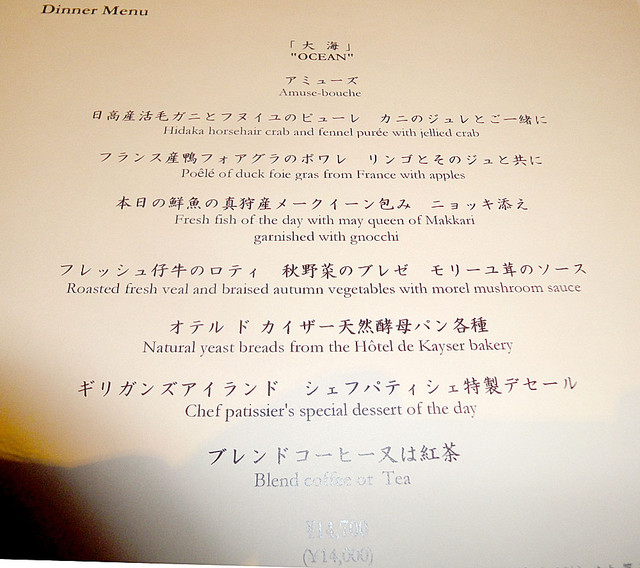 Dinner Menu
「 大 海 」
"OCEAN"
アミューズ
Amuse-bouche
日高産活毛ガニとフヌイユのピューレ　カニのジュレとご一緒に
Hidaka horsehair crab and fennel purée with jellied crab
フランス産鴨フォアグラのポワレ　リンゴとそのジュと共に
Poêlé of duck foie gras from France with apples
本日の鮮魚の真狩産メークイーン包み　ニョッキ添え
Fresh fish of the day with may queen of Makkari
garnished with gnocchi
フレッシュ仔牛のロティ　秋野菜のブレゼ　モリーユ茸のソース
Roasted fresh veal and braised autumn vegetables with morel mushroom sauce
オテル ド カイザー天然酵母パン各種
Natural yeast breads from the Hôtel de Kayser bakery
ギリガンズアイランド　シェフパティシェ特製デセール
Chef patissier's special dessert of the day
ブレンドコーヒー又は紅茶
Blend coffee or Tea
¥14,700
(¥14,000)